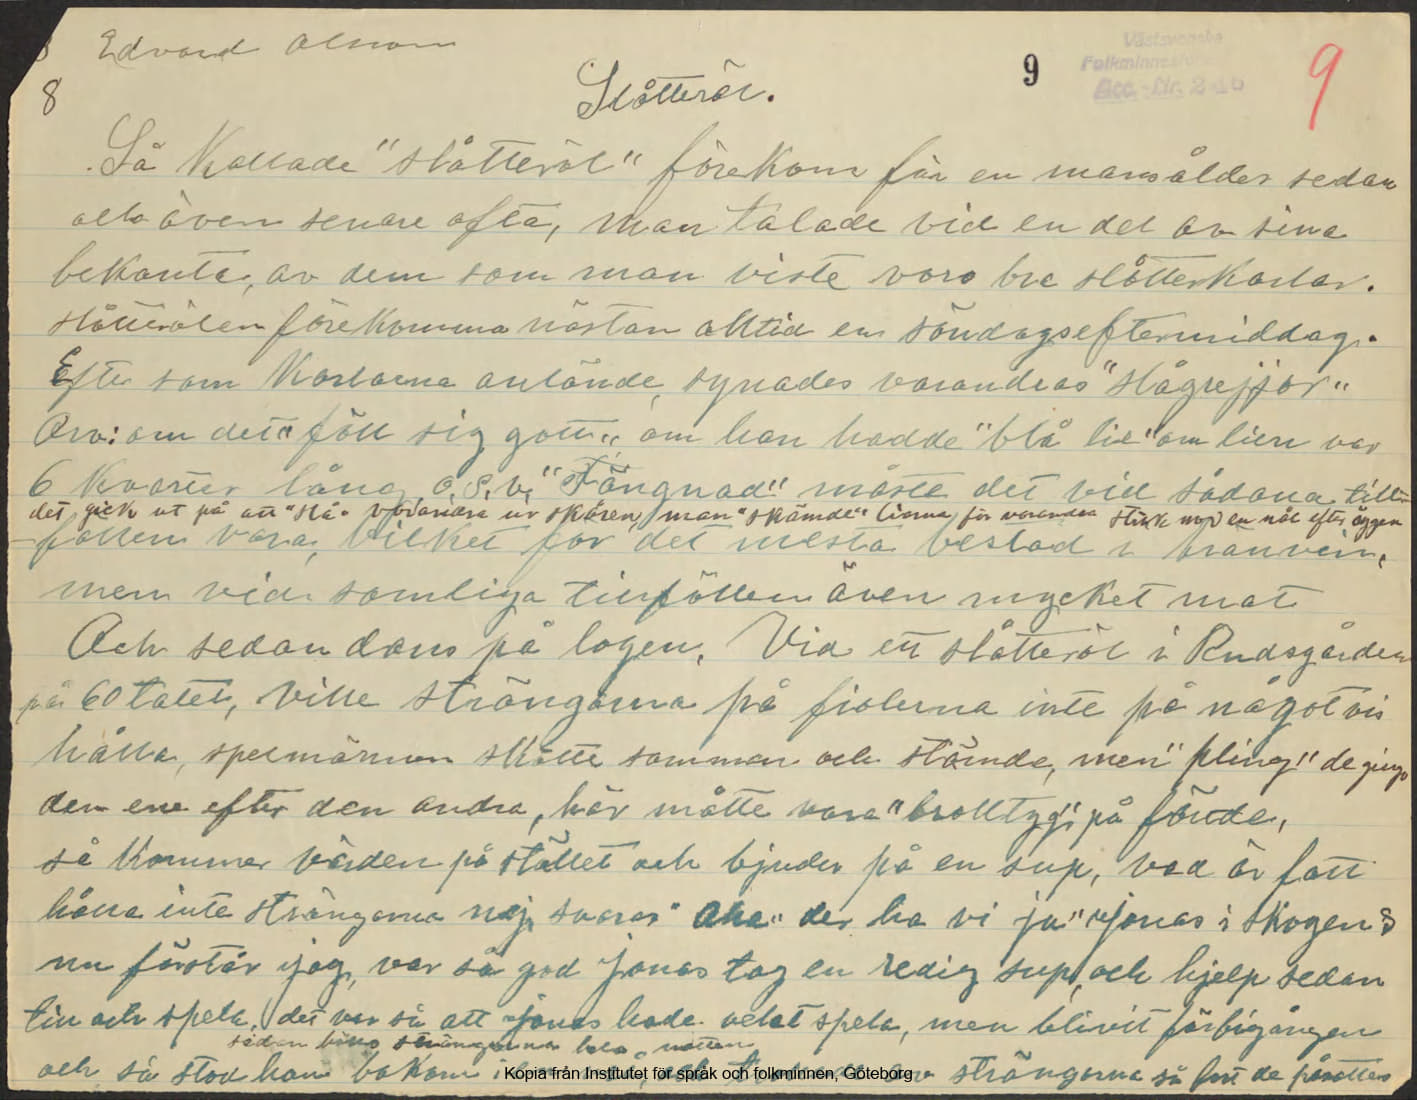 Edvard Olsson
8
9
Västsvenska
Folkminnes
Acc. Nr. 246
9
Slåtteröl.
Så Kallade "slåtteröl" föreKom för en mansålder sedan
och även senare ofta, man talade vid en del av sina
beKanta, av dem som man viste voro bra slåtterKarlar.
slåtterölen föreKomma nästan alltid en söndagseftermiddag.
Efter som Karlarna anlände, synades varandras "slågrejjor"
Orv: om det "föll sig gott" om han hadde "blå lie" om lien var
6 Kvarter lång o. s. v. "Fängnad" måste det vid sådana till-
det gick ut på att "slå" varandra ur skåren, man "skämde" liarna för varandra strök med en nål efter äggen
-fällen vara, vilket för det mesta bestod i bränvin,
men vid somliga tillfällen även mycket mat
Och sedan dans på logen. Vid ett slåtteröl i Rudsgården
på 60 talet, ville strängarna på fiolerna inte på något vis
hålla, spelmännen skötte samman och stämde, men "pling" de gingo
den ene efter den andra, här måtte vara "trolltyg" på färde,
så Kommer värden på stället och bjuder på en sup, vad är fatt
hålla inte strängarna nej, svaras "Aha" der ha vi ju "Jonas i skogen"
nu förstår jag, var så god Jonas tag en redig sup, och hjelp sedan
till och spela, det var så att Jonas hade velat spela, men blivit förbigången
sedan höllo strängarna hela natten
och så stod han baKom av strängarna så fort de påsattes
Kopia från Institutet för språk och folkminnen, Göteborg